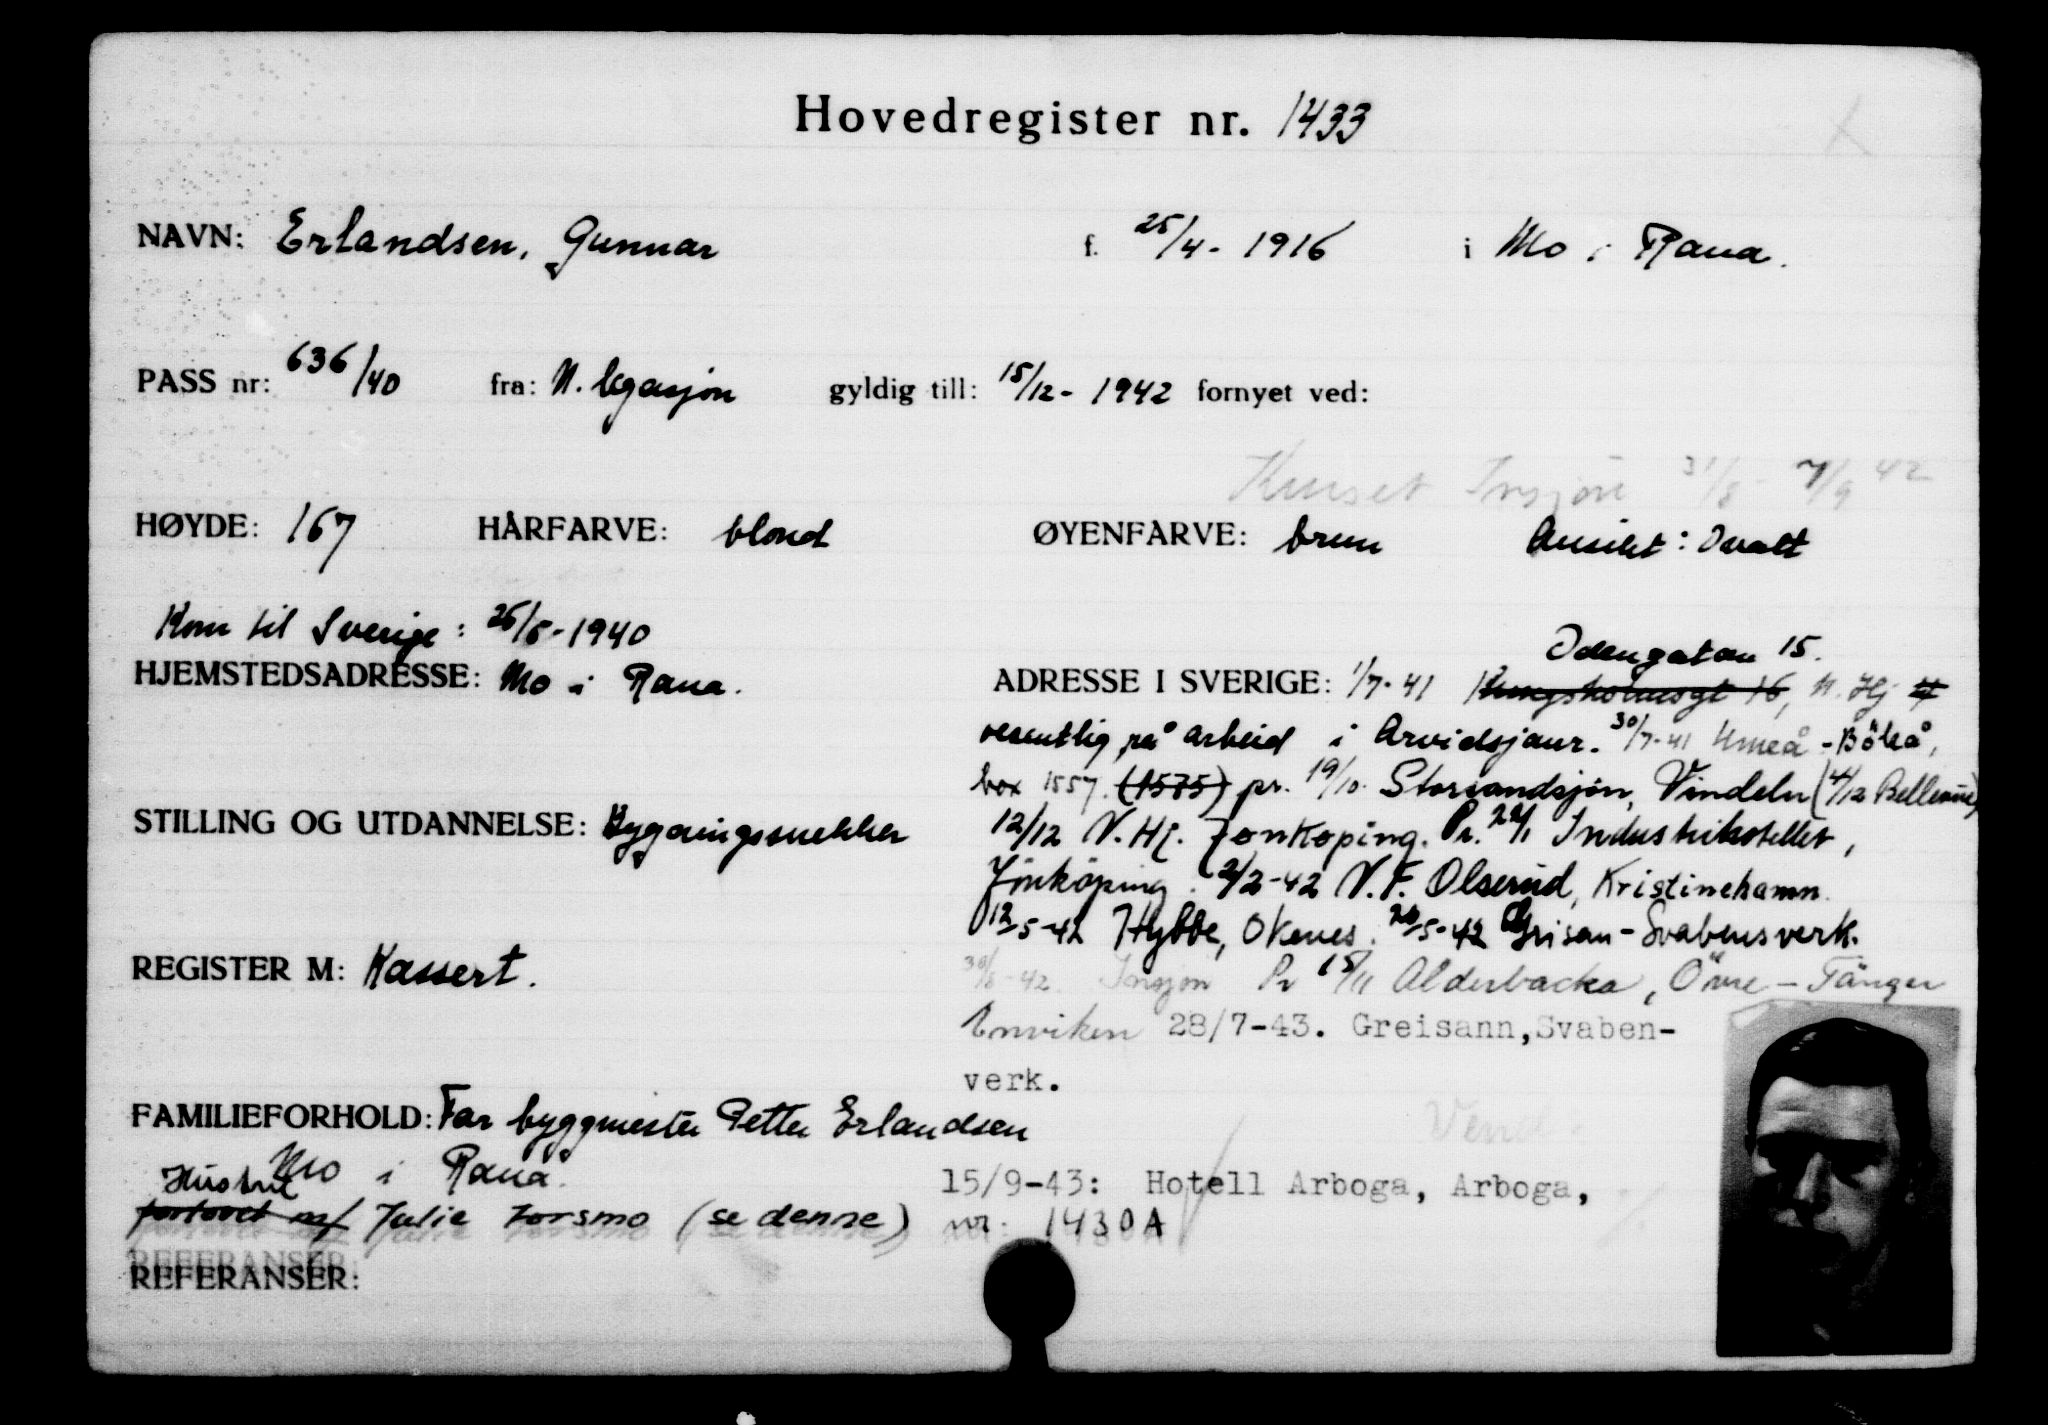 Hovedregister nr. 1433
NAVN: Erlandsen, Gunnar f. 25/4 - 1916 i Mo i Rana.
PASS nr: 636/40 fra: N. legasjon gyldig till: 15/12 - 1942 fornyet ved:
Kurset Insjön 31/8 - 7/9 42
HØYDE: 167 HÅRFARVE: blond ØYENFARVE: brun Ansikt: Ovalt
Kom til Sverige: 25/5 - 1940
Odengatan 15.
HJEMSTEDSADRESSE: Mo i Rana. ADRESSE I SVERIGE: 1/7-41 Kungsholmsgt 16, N. Hj
vesentlig på arbeid i Arvidsjaur. 30/7-41 Umeå - Böleå,
box 1557. (1575) pr. 19/10. Storsandsjön, Vindeln (4/12 Bellevue)
STILLING OG UTDANNELSE: Bygningssnekker 12/12 N. Hj. Jönköping. Pr. 22/1 Industrihotellet,
Jönköping. 2/2-42 N.F. Olserud, Kristinehamn.
12/5-42 Hybbe, Okenes. 20/5-42 Grisan - Svabensverk.
REGISTER M: Kassert. 30/8-42 Insjön Pr 15/11 Alderbacka, Övre - Tänger
Enviken 28/7-43. Greisann, Svaben-
verk.
FAMILIEFORHOLD: Far byggmester Petter Erlandsen
Vend.
Mo i Rana.
Hustru
15/9-43: Hotell Arboga, Arboga,
forlovet m/ Julie Forsmo (se denne) nr. 1430 A
REFERANSER: